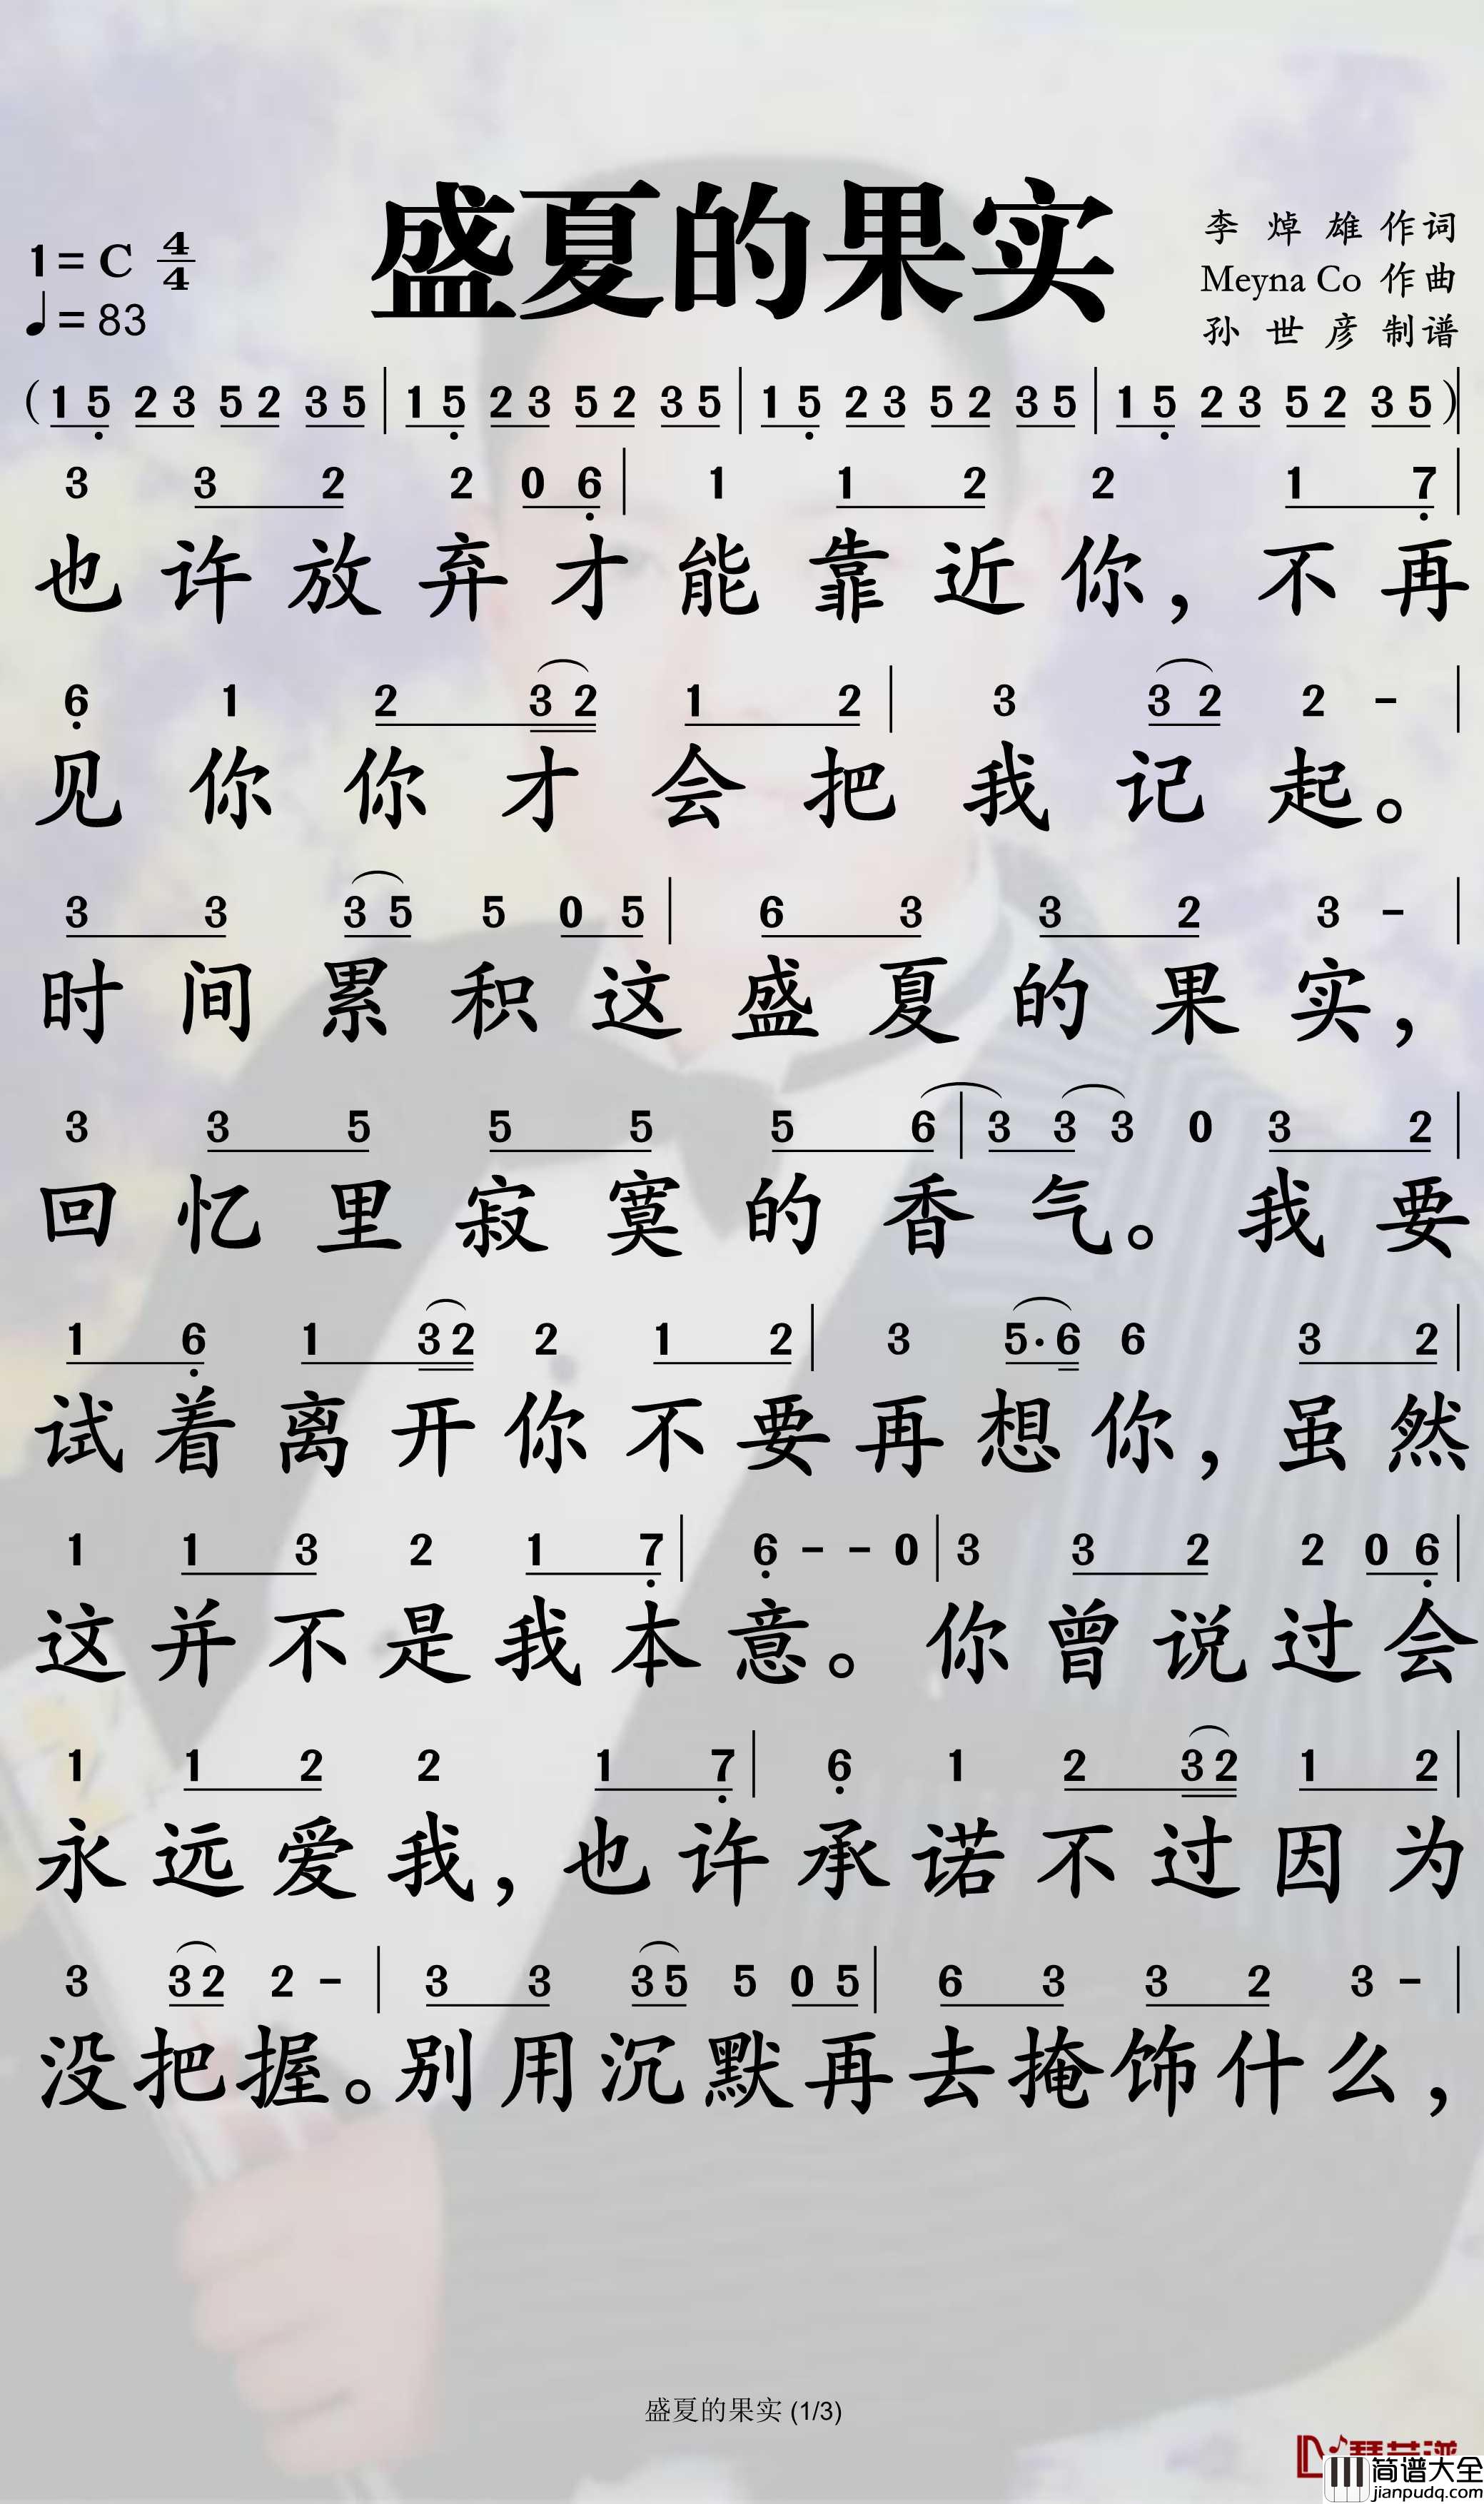 盛夏的果实
1=C 4/4
♩=83
李焯雄 作词
Meyna Co 作曲
孙世彦 制谱
(1 5̣ 2 3 5 2 3 5 | 1 5̣ 2 3 5 2 3 5 | 1 5̣ 2 3 5 2 3 5 | 1 5̣ 2 3 5 2 3 5)|
3 3 2 2 0 6̣ | 1 1 2 2 1 7̣ |
也许放弃才能靠近你，不再
6̣ 1 2 3 2 1 2 | 3 3 2 2 - |
见你你才会把我记起。
3 3 3 5 5 0 5 | 6 3 3 2 3 - |
时间累积这盛夏的果实，
3 3 5 5 5 5 6 | 3 3 3 0 3 2 |
回忆里寂寞的香气。我要
1 6̣ 1 3 2 2 1 2 | 3 5· 6 6 3 2 |
试着离开你不要再想你，虽然
1 1 3 2 1 7̣ | 6̣ - - 0 | 3 3 2 2 0 6̣ |
这并不是我本意。你曾说过会
1 1 2 2 1 7̣ | 6̣ 1 2 3 2 1 2 |
永远爱我，也许承诺不过因为
3 3 2 2 - | 3 3 3 5 5 0 5 | 6 3 3 2 3 - |
没把握。别用沉默再去掩饰什么，
盛夏的果实 (1/3)
简谱大全
jianpudq.com